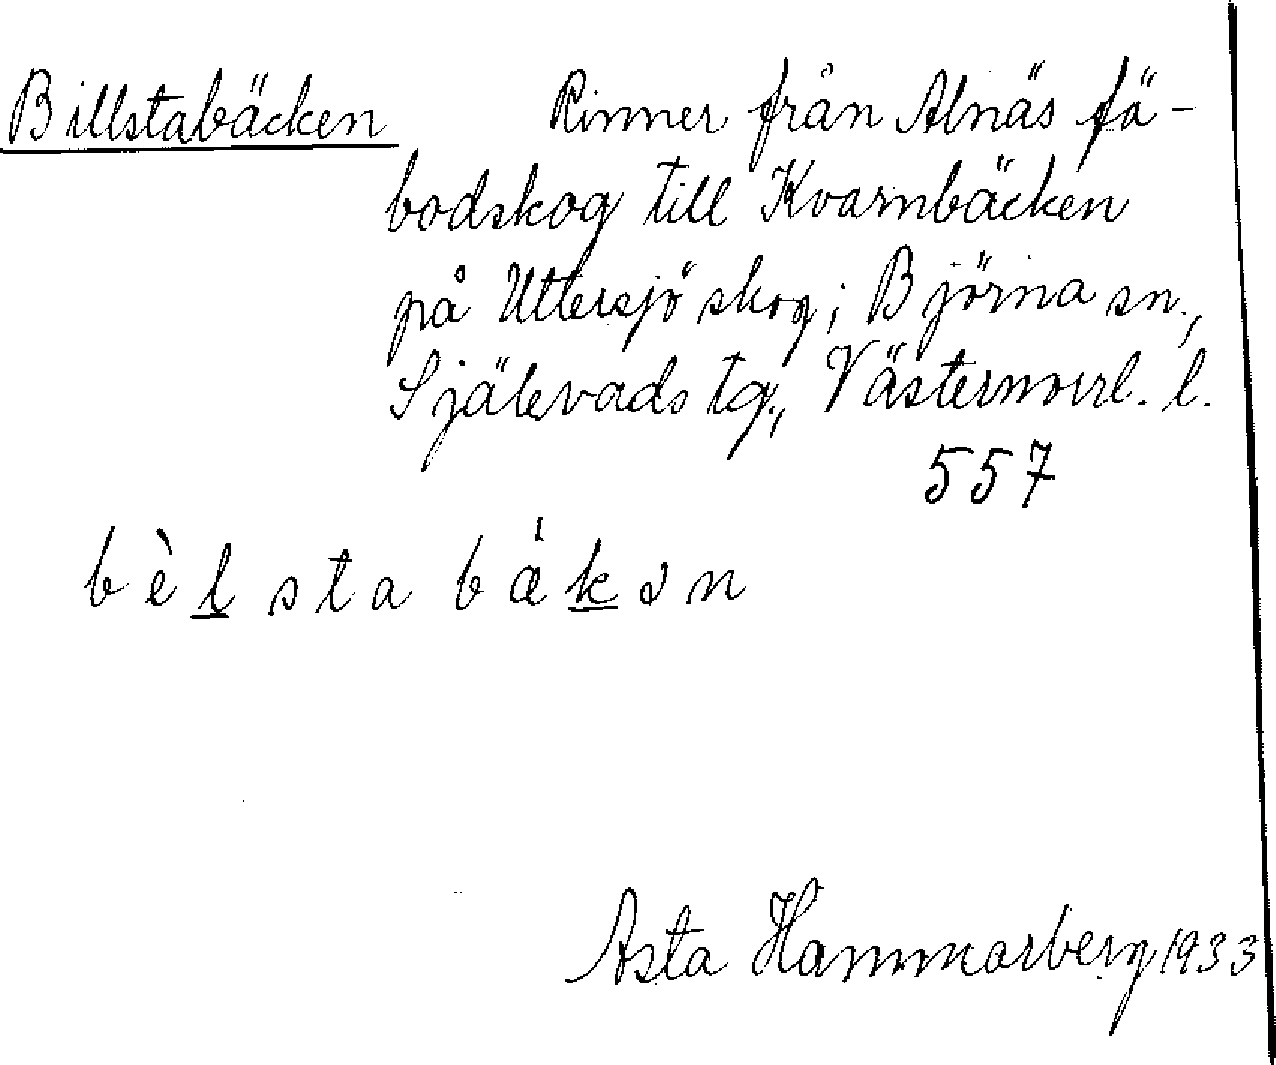 Billstabäcken Rinner från Alnäs fä-
bodskog till Kvarnbäcken
på Uttersjö skog; Björna sn.,
Själevads tg., Västernorrl. l.
557
bèlsta bákən
Asta Hammarberg 1933